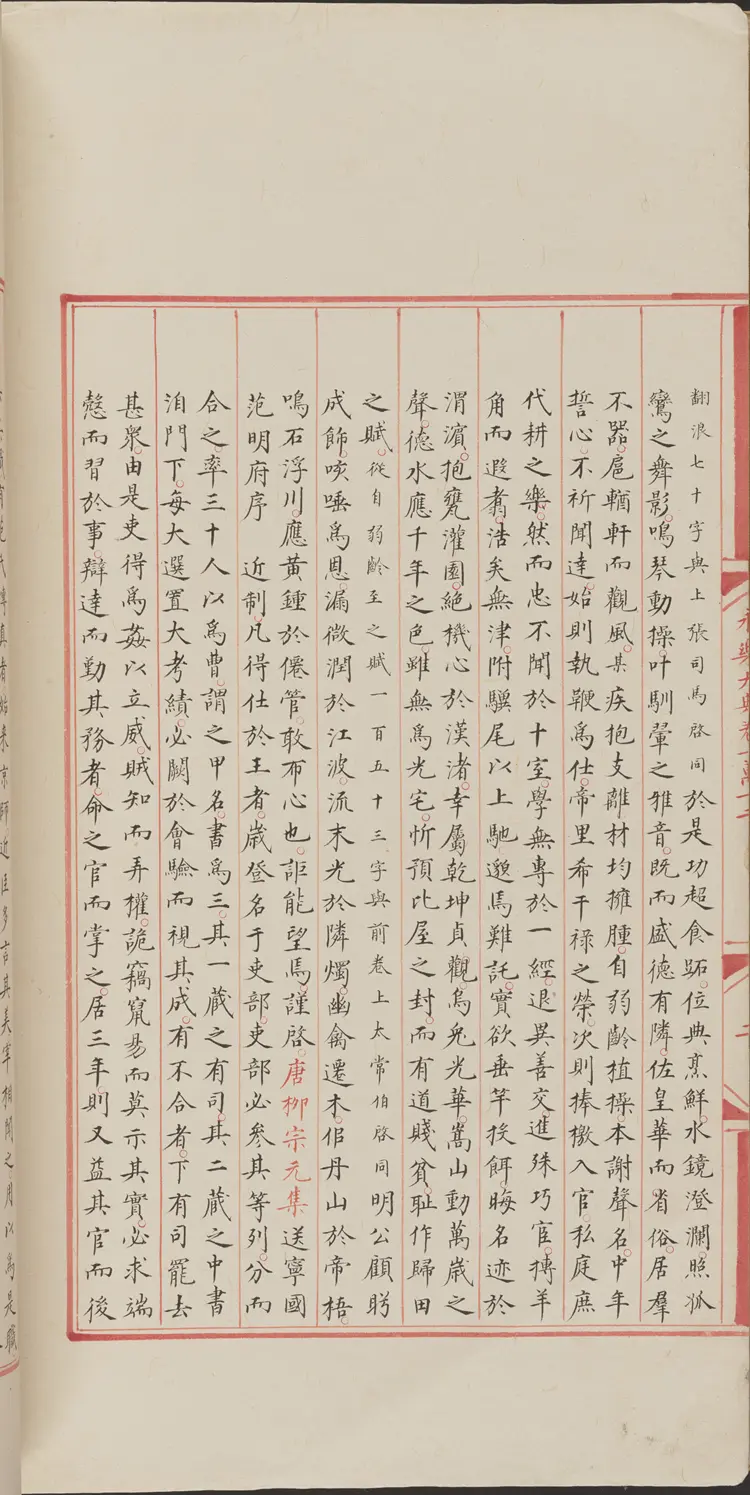 永樂大典卷一萬一千
二
翻浪七十字與上張司馬啓同於是功超食跖。位典烹鮮。水鏡澄瀾。照孤
鸞之舞影。鳴琴動操。叶馴翬之雅音。既而盛德有隣。佐皇華而省俗。居羣
不器。扈輶軒而觀風。某疾抱支離。材均擁腫。自弱齡植操。本謝聲名。中年
誓心。不祈聞達。始則執鞭爲仕。帝里希干祿之榮。次則捧檄入官。私庭庶
代耕之樂。然而忠不聞於十室。學無專於一經。退異善交。進殊巧宦。摶羊
角而遐翥。浩矣無津。附驥尾以上馳。邈焉難託。實欲垂竿投餌。晦名迹於
渭濱。抱甕灌園。絕機心於漢渚。幸屬乾坤貞觀。烏兔光華。嵩山動萬歲之
聲。德水應千年之色。雖無爲光宅。忻預比屋之封。而有道賤貧。恥作歸田
之賦。從自弱齡至之賦一百五十三字與前卷上太常伯啓同明公顧眄
成飾。咳唾爲恩。漏微潤於江波。流末光於隣燭。幽禽遷木。佀丹山於帝梧。
鳴石浮川。應黃鍾於僊管。敢布心也。詎能望焉。謹啓。唐柳宗元集送寧國
范明府序 近制。凡得仕於王者。歲登名于吏部。吏部必參其等列。分而
合之。率三十人以爲曹。謂之甲名。書爲三。其一藏之有司。其二藏之中書
洎門下。每大選置大考績。必闕於會驗而視其成。有不合者。下有司罷去
甚衆。由是吏得爲姦以立威。賊知而弄權。詭竊竄易而莫示其實。必求端
慤而習於事。辯達而勤其務者。命之官而掌之。居三年。則又益其官而後